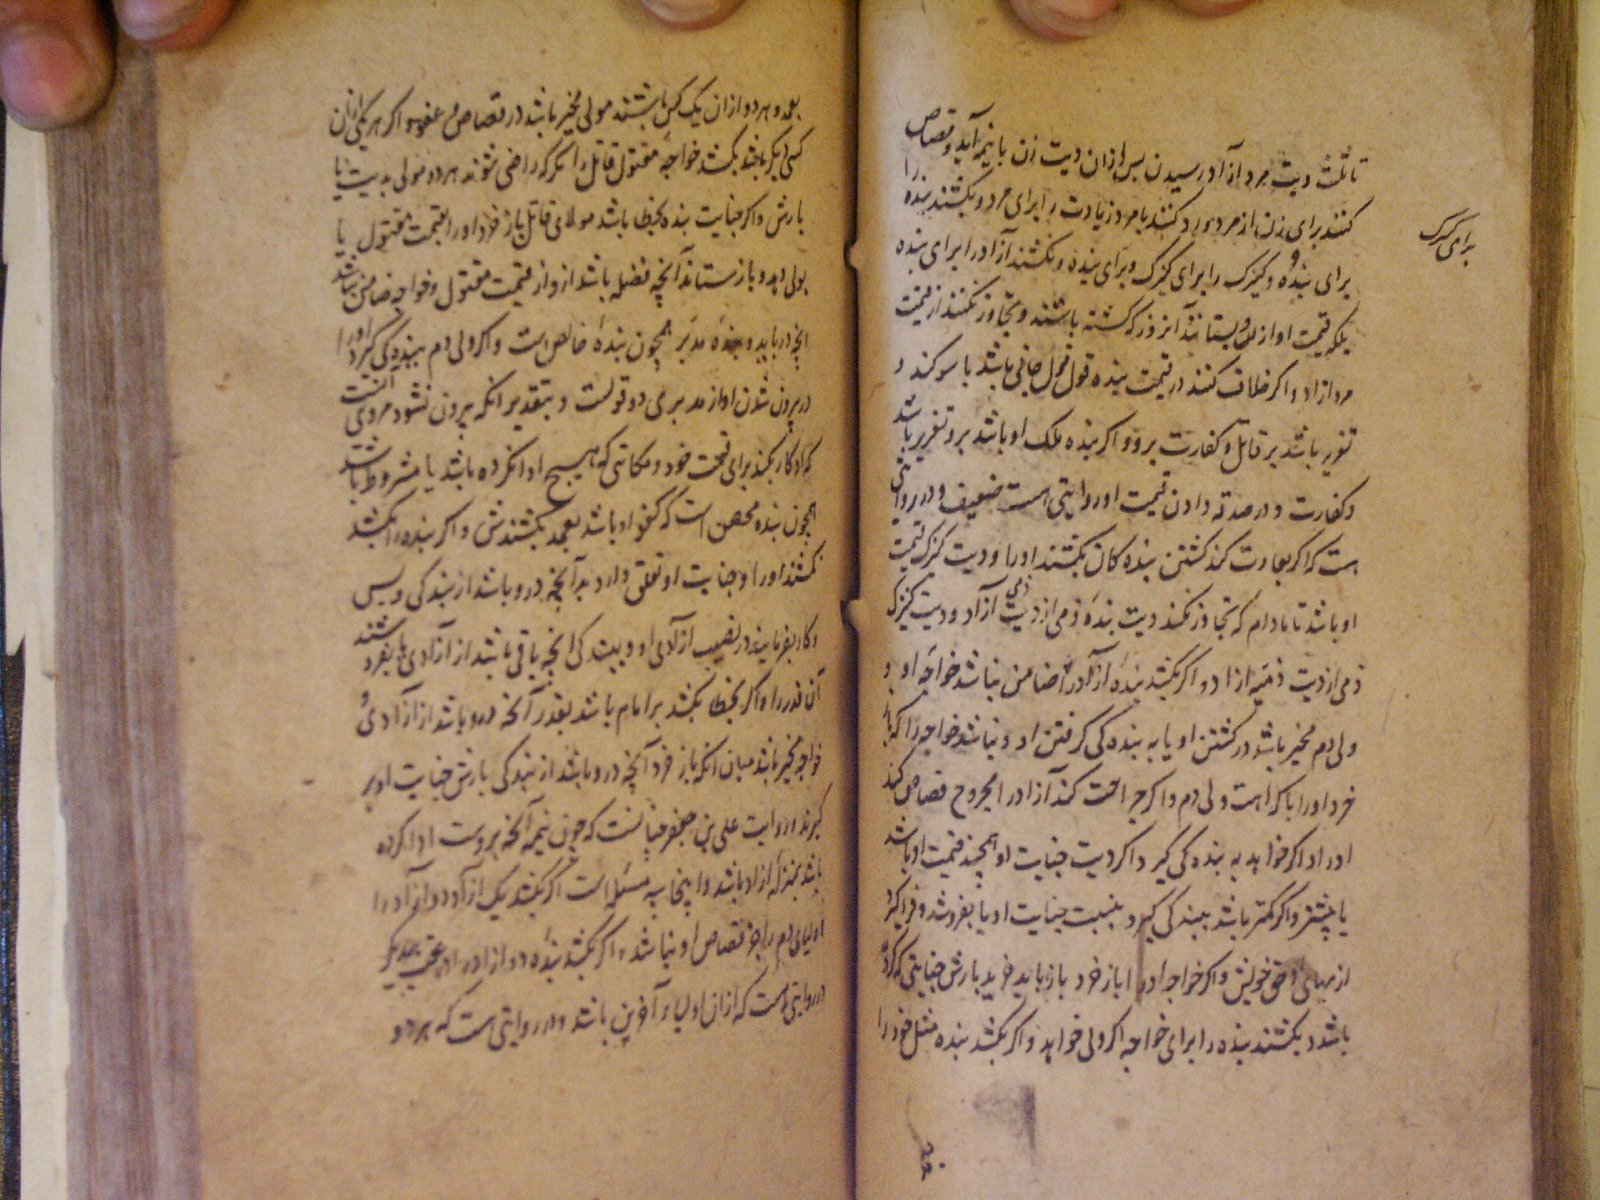 تا ثلث دیت مرد آزاد رسیدن پس از ان دیت زن با نیمه آید و قصاص
کنند برای زن از مرد و رد کنند با مرد زیادت را و برای مرد و بکشند بنده را
برای بنده و کنیزک را برای کنیزک و برای بنده و نکشند آزاد را برای بنده
برای کنیزک
بلکه قیمت او از و بستانند آنروز که کشته باشند و تجاوز نکنند از قیمت
مرد ازاد و اکر خلاف کنند در قیمت بنده قول قول جانی باشد با سوکند و
تعزیر باشد بر قاتل و کفارت برو و اکر بنده ملک او باشد برو تعزیر باشد
و کفارت و در صدقه دادن قیمت او روایتی است ضعیف و در روایتی
هست که اکر بعادت کند کشتن بنده کان بکشند او را و دیت کنیزک قیمت
او باشد تا مادام که تجاوز نکند دیت بنده ذمی از دیت ذمی آزاد و دیت کنیزک
ذمی از دیت ذمیه ازاد و اکر بکشد بنده آزاد را ضامن نباشد خواجه او و
ولی دم مخیر باشد در کشتن او یا به بنده کی کرفتن او و نباشد خواجه را که باز
خرد او را با کراهت ولی دم و اکر جراحت کند آزاد را مجروح قصاص کند
او را و اکر خواهد به بنده کی کیرد اکر دیت جنایت او همچند قیمت او باشد
یا بیشتر و اکر کمتر باشد ببندکی کیرد بنسبت جنایت او یا بفروشد و فرا کیرد
از بهای او حق خویش و اکر خواجه او را باز خرد باز باید خرید بارش جنایتی که کرده
باشد و بکشند بنده را برای خواجه اکر ولی خواهد و اکر بکشد بنده مثل خود را
بعمد و هر دو از ان یک کس باشند مولی مخیر باشد در قصاص و عفو و اکر هر یکی از ان
کسی دیکر باشد بکشد خواجه مقتول قاتل را مکر که راضی شوند هر دو مولی بدیت یا
بارش و اکر جنایت بنده بخطا باشد مولای قاتل باز خرد او را بقیمت مقتول یا
بولی دهد و باز ستاند آنچه فضله باشد ازو از قیمت مقتول و خواجه ضامن نباشد
آنچه درباید و بنده مدبر همچون بنده خالص است و اکر ولی دم ببنده کی کیرد او را
در بیرون شدن او از مدبری دو قولست و بتقدیر انکه بیرون نشود مروی آنست
که او کار بکند برای قیمت خود و مکاتبی که هیچ ادا نکرده باشد یا مشروط باشد
همچون بنده محض است که کفو او باشد بعمد بکشندش و اکر بنده را بکشد
نکشند او را و جنایت او تعلق دارد بدآنچه درو باشد از بندکی و پس
و کار بفرمایند در نصیب ازآدی او و ببندکی آنچه باقی باشد از آزادی یا بفروشند
آن قدر را و اکر بخطا بکشد بر امام باشد بقدر آنچه درو باشد از آزادی و
خواجه مخیر باشد میان آنکه باز خرد آنچه درو باشد از بندکی بارش جنایت او بر
کیرند و روایت علی بن جعفر چنانست که چون نیمه آنچه بروست ادا کرده
باشد بمنزله آزاد باشد و اینجا سه مسئله است اکر بکشد یک ازآد دو آزاد را
اولیای دم را جز قصاص او نباشد و اکر بکشد بنده دو ازاد را در عقب یکدیکر
در روایتی هست که ازان اولیاء آخرین باشد و در روایتی هست که هر دو